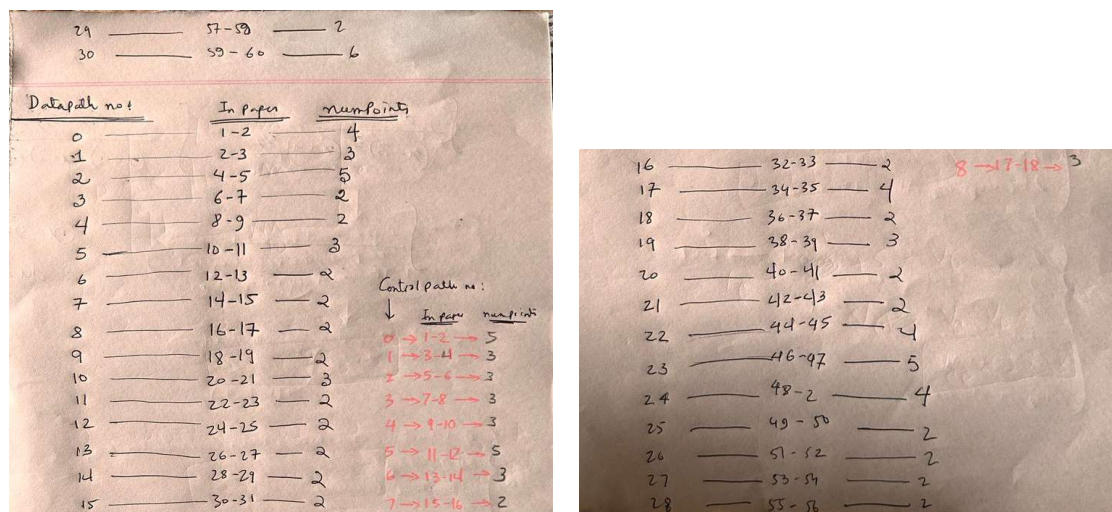 29 57-58 2
30 59-60 6
Datapath no: In paper numPoints
0 1-2 4
1 2-3 3
2 4-5 5
3 6-7 2
4 8-9 2
5 10-11 3
6 12-13 2
7 14-15 2
8 16-17 2
9 18-19 2
10 20-21 3
11 22-23 2
12 24-25 2
13 26-27 2
14 28-29 2
15 30-31 2
Control path no:
In paper numpoints
0 → 1-2 → 5
1 → 3-4 → 3
2 → 5-6 → 3
3 → 7-8 → 3
4 → 9-10 → 3
5 → 11-12 → 5
6 → 13-14 → 3
7 → 15-16 → 2
16 32-33 2
17 34-35 4
18 36-37 2
19 38-39 3
20 40-41 2
21 42-43 2
22 44-45 4
23 46-47 5
24 48-2 4
25 49-50 2
26 51-52 2
27 53-54 2
28 55-56 2
8 → 17-18 → 3